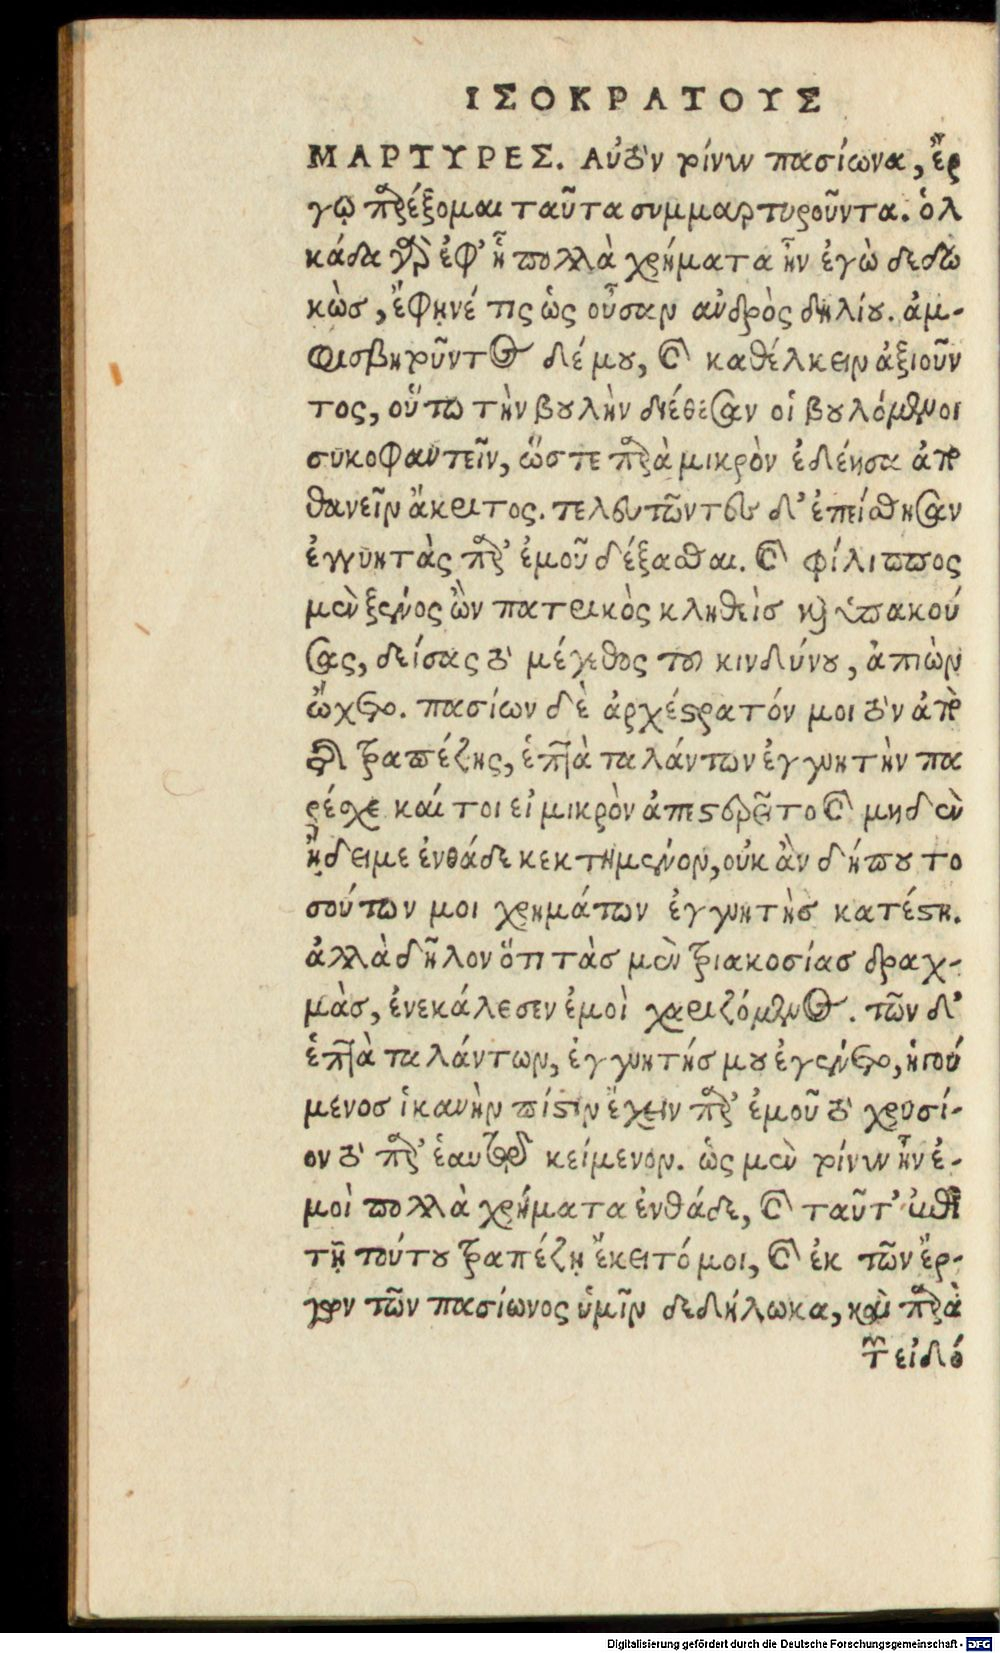 ΙΣΟΚΡΑΤΟΥΣ
ΜΑΡΤΥΡΕΣ. Αὐτὸν τοίνυν πασίωνα, ἔρ
γῳ παρέξομαι ταῦτα συμμαρτυροῦντα. ὁλ
κάδα γὰρ ἐφ’ ᾗ πολλὰ χρήματα ἦν ἐγὼ δεδω
κὼς, ἔφηνέ τις ὡς οὖσαν ἀνδρὸς δηλίου. ἀμ-
φισβητοῦντος δέ μου, καὶ καθέλκειν ἀξιοῦν
τος, οὕτω τὴν βουλὴν διέθεσαν οἱ βουλόμενοι
συκοφαντεῖν, ὥστε παρὰ μικρὸν ἐδέησα ἀπο
θανεῖν ἄκριτος. τελευτῶντες δ’ ἐπείσθησαν
ἐγγυητὰς παρ’ ἐμοῦ δέξασθαι. καὶ φίλιππος
μὲν ξένος ὢν πατρικὸς κληθεὶς καὶ ὑπακού
σας, δείσας τὸ μέγεθος τοῦ κινδύνου, ἀπιὼν
ᾤχετο. πασίων δὲ ἀρχέστρατόν μοι τὸν ἀπὸ
τῆς τραπέζης, ἑπτὰ ταλάντων ἐγγυητὴν πα
ρέσχε καί τοι εἰ μικρὸν ἀπεστερεῖτο καὶ μηδὲν
ᾔδει με ἐνθάδε κεκτημένον, οὐκ ἂν δήπου το
σούτων μοι χρημάτων ἐγγυητὴς κατέστη.
ἀλλὰ δῆλον ὅτι τὰς μὲν τριακοσίας δραχ-
μὰς, ἐνεκάλεσεν ἐμοὶ χαριζόμενος. τῶν δ’
ἑπτὰ ταλάντων, ἐγγυητής μου ἐγένετο, ἡγού
μενος ἱκανὴν πίστιν ἔχειν παρ’ ἐμοῦ τὸ χρυσί-
ον τὸ παρ’ ἑαυτῷ κείμενον. ὡς μὲν τοίνυν ἦν ἐ-
μοὶ πολλὰ χρήματα ἐνθάδε, καὶ ταῦτ’ ἐπὶ
τῇ τούτου τραπέζῃ ἔκειτό μοι, καὶ ἐκ τῶν ἔρ-
γων τῶν πασίωνος ὑμῖν δεδήλωκα, καὶ παρὰ
τῶν εἰδό
Digitalisierung gefördert durch die Deutsche Forschungsgemeinschaft - DFG